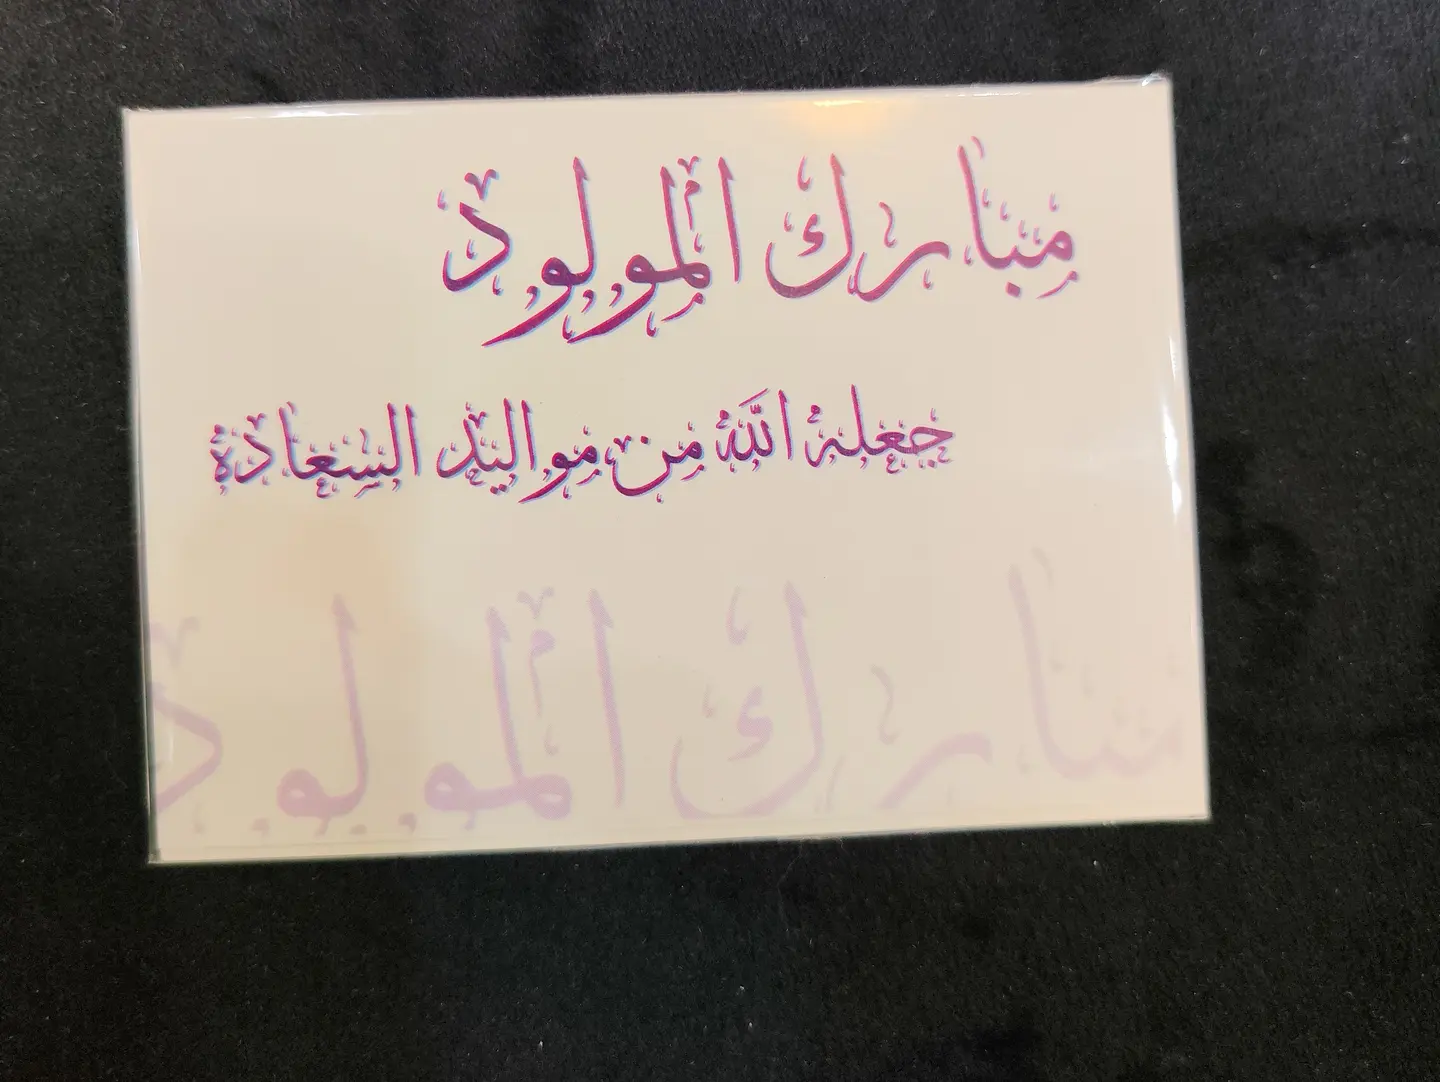 مبارك المولود
جعله الله من مواليد السعادة
مبارك المولود